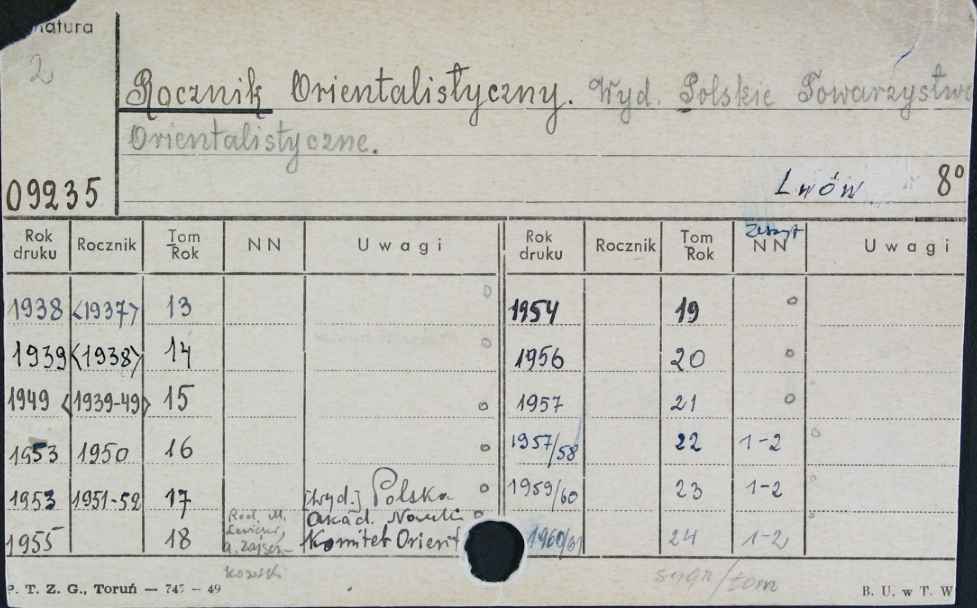 natura
2
Rocznik Orientalistyczny. Wyd. Polskie Towarzystwo
Orientalistyczne.
09235 Lwów 8°
Rok druku Rocznik Tom Rok NN Uwagi Rok druku Rocznik Tom Rok Zeszyt NN Uwagi
1938 <1937> 13 1954 19
1939 <1938> 14 1956 20
1949 <1939-49> 15 1957 21
1953 1950 16 1957/58 22 1-2
1953 1951-52 17 [Wyd.] Polska 1959/60 23 1-2
Red. M. Akad. Nauk
1955 18 Komitet Orient 1960/61 24 1-2
P. T. Z. G., Toruń — 747 — 49 sygn/tom B. U. w T. W